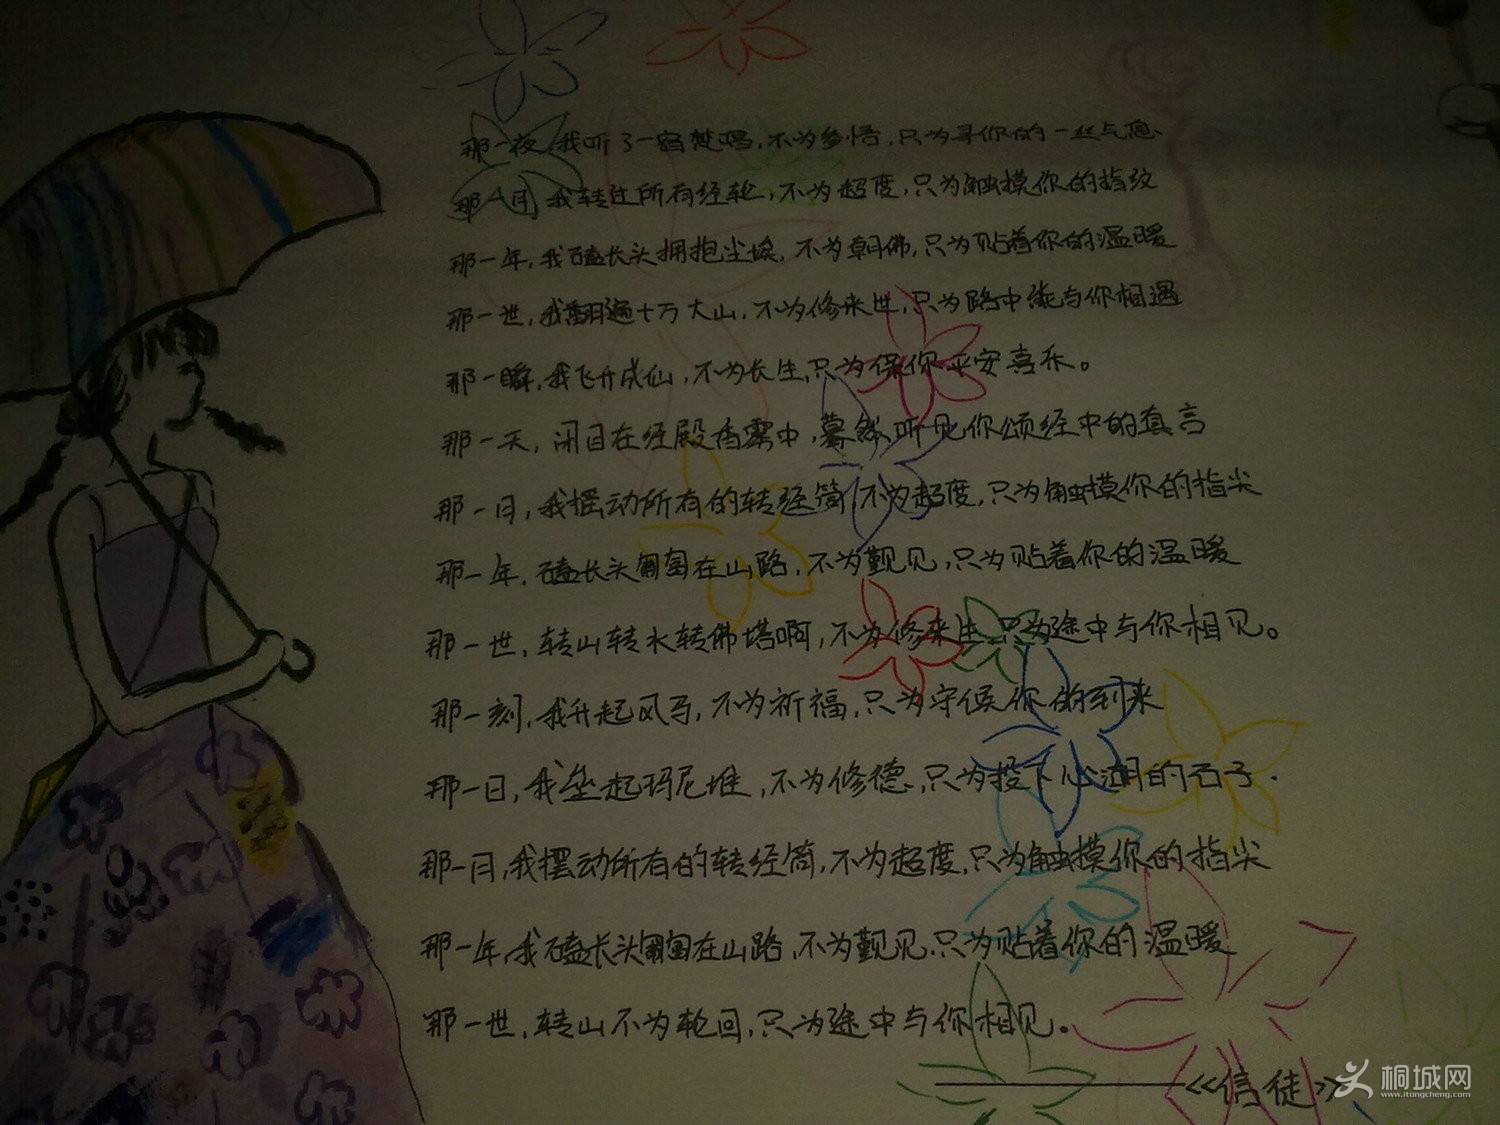 那一夜,我听了一宿梵唱,不为参悟,只为寻你的一丝气息
那一月,我转过所有经轮,不为超度,只为触摸你的指纹
那一年,我磕长头拥抱尘埃,不为朝佛,只为贴着你的温暖
那一世,我翻遍十万大山,不为修来世,只为路中能与你相遇
那一瞬,我飞升成仙,不为长生,只为保你平安喜乐。
那一天,闭目在经殿香雾中,蓦然听见你颂经中的真言
那一月,我摇动所有的转经筒,不为超度,只为触摸你的指尖
那一年,磕长头匍匐在山路,不为觐见,只为贴着你的温暖
那一世,转山转水转佛塔啊,不为修来生,只为途中与你相见。
那一刻,我升起风马,不为祈福,只为守候你的到来
那一日,我垒起玛尼堆,不为修德,只为投下心湖的石子.
那一月,我摇动所有的转经筒,不为超度,只为触摸你的指尖
那一年,我磕长头匍匐在山路,不为觐见,只为贴着你的温暖
那一世,转山不为轮回,只为途中与你相见。
——《信徒》
桐城网
www.itongcheng.com